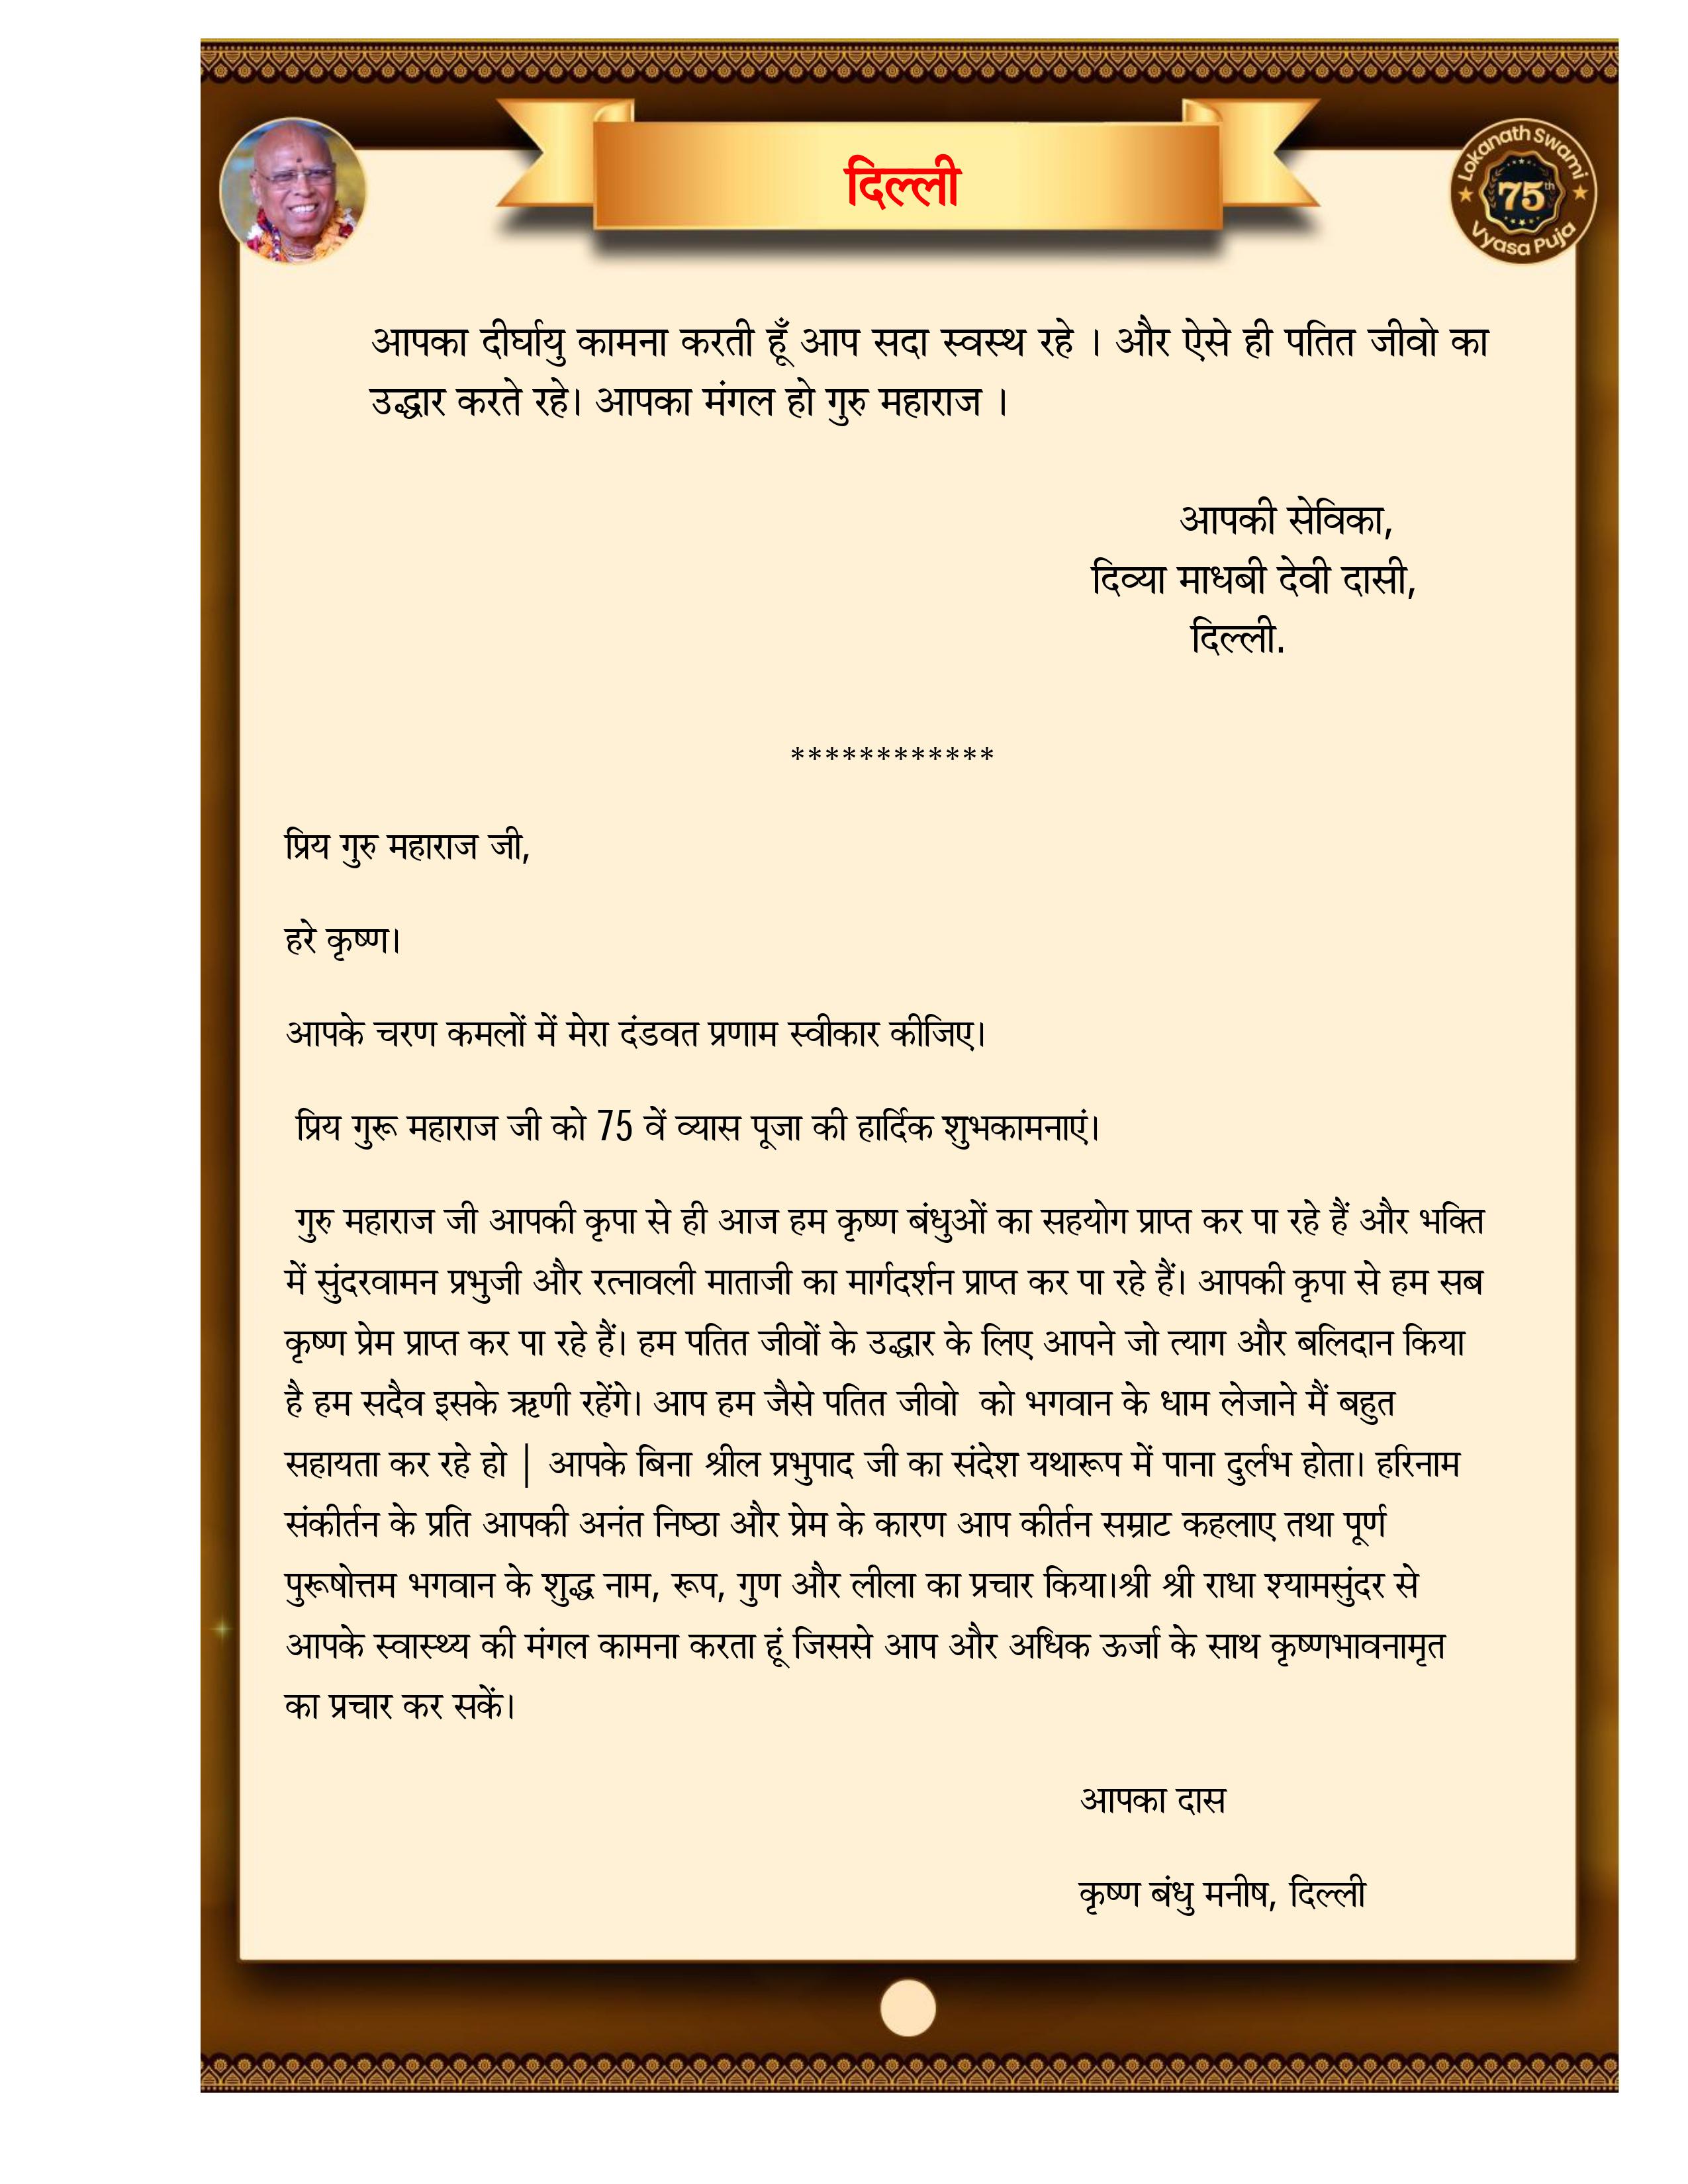 दिल्ली
Lokanath Swami
75th
Vyasa Puja
आपका दीर्घायु कामना करती हूँ आप सदा स्वस्थ रहे । और ऐसे ही पतित जीवो का
उद्धार करते रहे। आपका मंगल हो गुरु महाराज ।
आपकी सेविका,
दिव्या माधबी देवी दासी,
दिल्ली.
************
प्रिय गुरु महाराज जी,
हरे कृष्ण।
आपके चरण कमलों में मेरा दंडवत प्रणाम स्वीकार कीजिए।
प्रिय गुरू महाराज जी को 75 वें व्यास पूजा की हार्दिक शुभकामनाएं।
गुरु महाराज जी आपकी कृपा से ही आज हम कृष्ण बंधुओं का सहयोग प्राप्त कर पा रहे हैं और भक्ति
में सुंदरवामन प्रभुजी और रत्नावली माताजी का मार्गदर्शन प्राप्त कर पा रहे हैं। आपकी कृपा से हम सब
कृष्ण प्रेम प्राप्त कर पा रहे हैं। हम पतित जीवों के उद्धार के लिए आपने जो त्याग और बलिदान किया
है हम सदैव इसके ऋणी रहेंगे। आप हम जैसे पतित जीवो को भगवान के धाम लेजाने मैं बहुत
सहायता कर रहे हो | आपके बिना श्रील प्रभुपाद जी का संदेश यथारूप में पाना दुर्लभ होता। हरिनाम
संकीर्तन के प्रति आपकी अनंत निष्ठा और प्रेम के कारण आप कीर्तन सम्राट कहलाए तथा पूर्ण
पुरूषोत्तम भगवान के शुद्ध नाम, रूप, गुण और लीला का प्रचार किया।श्री श्री राधा श्यामसुंदर से
आपके स्वास्थ्य की मंगल कामना करता हूं जिससे आप और अधिक ऊर्जा के साथ कृष्णभावनामृत
का प्रचार कर सकें।
आपका दास
कृष्ण बंधु मनीष, दिल्ली